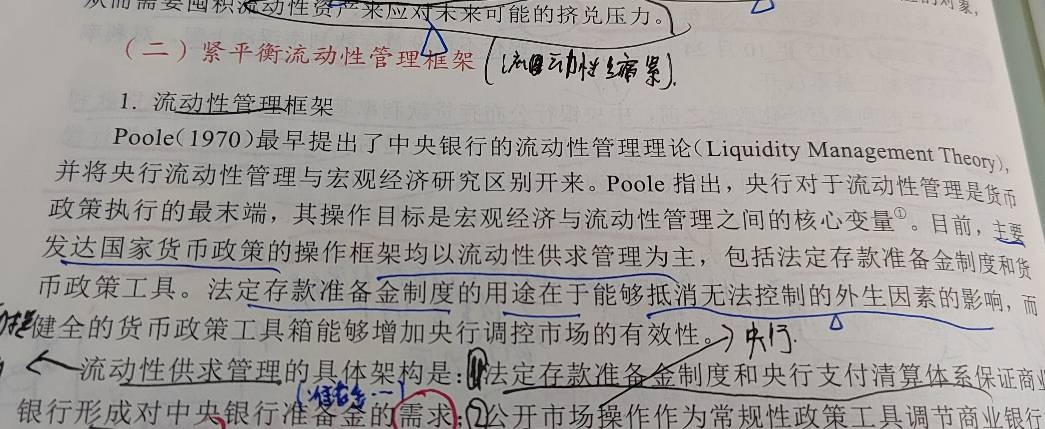 从而需要囤积流动性资产来应对未来可能的挤兑压力。
(二)紧平衡流动性管理框架
1. 流动性管理框架
Poole(1970)最早提出了中央银行的流动性管理理论(Liquidity Management Theory),
并将央行流动性管理与宏观经济研究区别开来。Poole 指出，央行对于流动性管理是货币
政策执行的最末端，其操作目标是宏观经济与流动性管理之间的核心变量①。目前，主要
发达国家货币政策的操作框架均以流动性供求管理为主，包括法定存款准备金制度和货
币政策工具。法定存款准备金制度的用途在于能够抵消无法控制的外生因素的影响，而
健全的货币政策工具箱能够增加央行调控市场的有效性。
央行.
流动性供求管理的具体架构是：①法定存款准备金制度和央行支付清算体系保证商业
银行形成对中央银行准备金的需求；②公开市场操作作为常规性政策工具调节商业银行